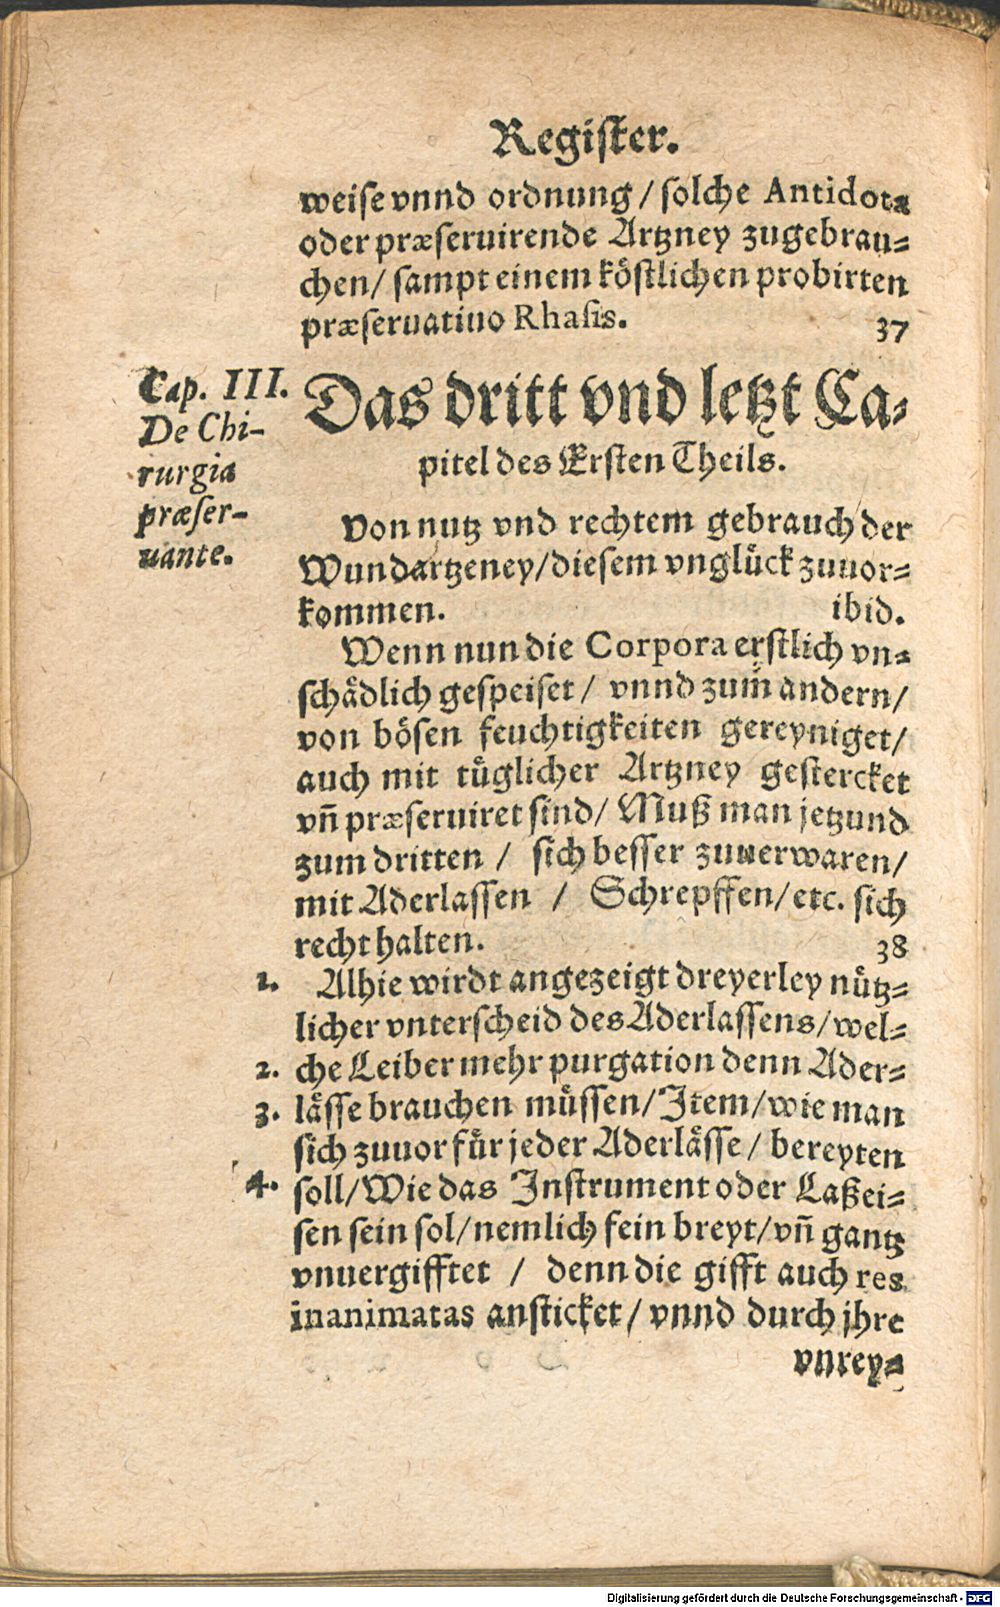 Register.
weise vnnd ordnung / solche Antidota
oder præseruirende Artzney zugebrau⸗
chen / sampt einem köstlichen probirten
præseruatiuo Rhasis. 37
Cap. III.
De Chi-
rurgia
præser-
uante.
Das dritt vnd letzt Ca⸗
pitel des Ersten Theils.
Von nutz vnd rechtem gebrauch der
Wundartzeney / diesem vnglück zuuor⸗
kommen. ibid.
Wenn nun die Corpora erstlich vn⸗
schädlich gespeiset / vnnd zum andern /
von bösen feuchtigkeiten gereyniget /
auch mit tüglicher Artzney gestercket
vñ præseruiret sind / Muß man jetzund
zum dritten / sich besser zuuerwaren /
mit Aderlassen / Schrepffen / etc. sich
recht halten. 38
1. Alhie wirdt angezeigt dreyerley nütz⸗
licher vnterscheid des Aderlassens / wel⸗
2. che Leiber mehr purgation denn Ader⸗
3. lässe brauchen müssen / Item / wie man
sich zuuor für jeder Aderlässe / bereyten
4. soll / Wie das Instrument oder Laßei⸗
sen sein sol / nemlich fein breyt / vñ gantz
vnuergifftet / denn die gifft auch res
inanimatas ansticket / vnnd durch jhre
vnrey⸗
Digitalisierung gefördert durch die Deutsche Forschungsgemeinschaft - DFG